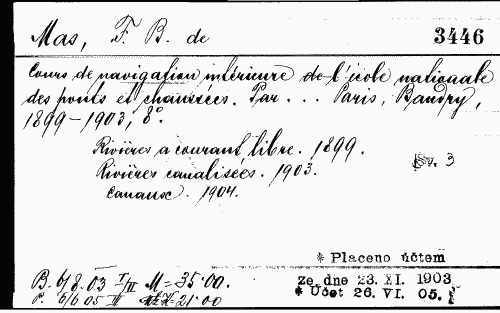 Mas, F. B. de
3446
Cours de navigation intérieure de l'école nationale
des ponts et chaussées. Par ... Paris, Baudry,
1899-1903, 8°.
Rivières a courant libre. 1899.
Sv. 3
Rivières canalisées. 1903.
Canaux. 1904.
* Placeno účtem
B. 6/8.03 I/II M = 35·00.
ze dne 23. XI. 1903
P. 6/6 05 III 21·00
* Účet 26. VI. 05.